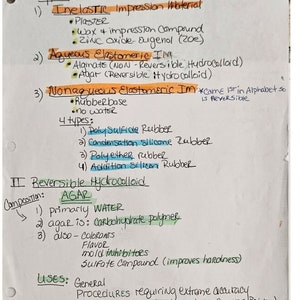 1) Inelastic Impression Material
• PLASTER
• Wax & Impression Compound
• Zinc Oxide-Eugenol (ZOE)
2) Aqueous Elastomeric IM
• Alginate (NON-Reversible Hydrocolloid)
• Agar (Reversible Hydrocolloid)
3) Nonaqueous Elastomeric Im
*Came 1st in Alphabet so is Reversible
• Rubberbase
• no water
4 types:
1) Polysulfide Rubber
2) Condensation Silicone Rubber
3) Polyether rubber
4) Addition Silicon Rubber
II. Reversible Hydrocolloid
AGAR
Composition:
1) primarily WATER
2) agar is: Carbohydrate polymer
3) also - Colorants
Flavor
mold inhibitors
Sulfate Compound (improves hardness)
USES: General
PROCEDURES requiring extreme accuracy